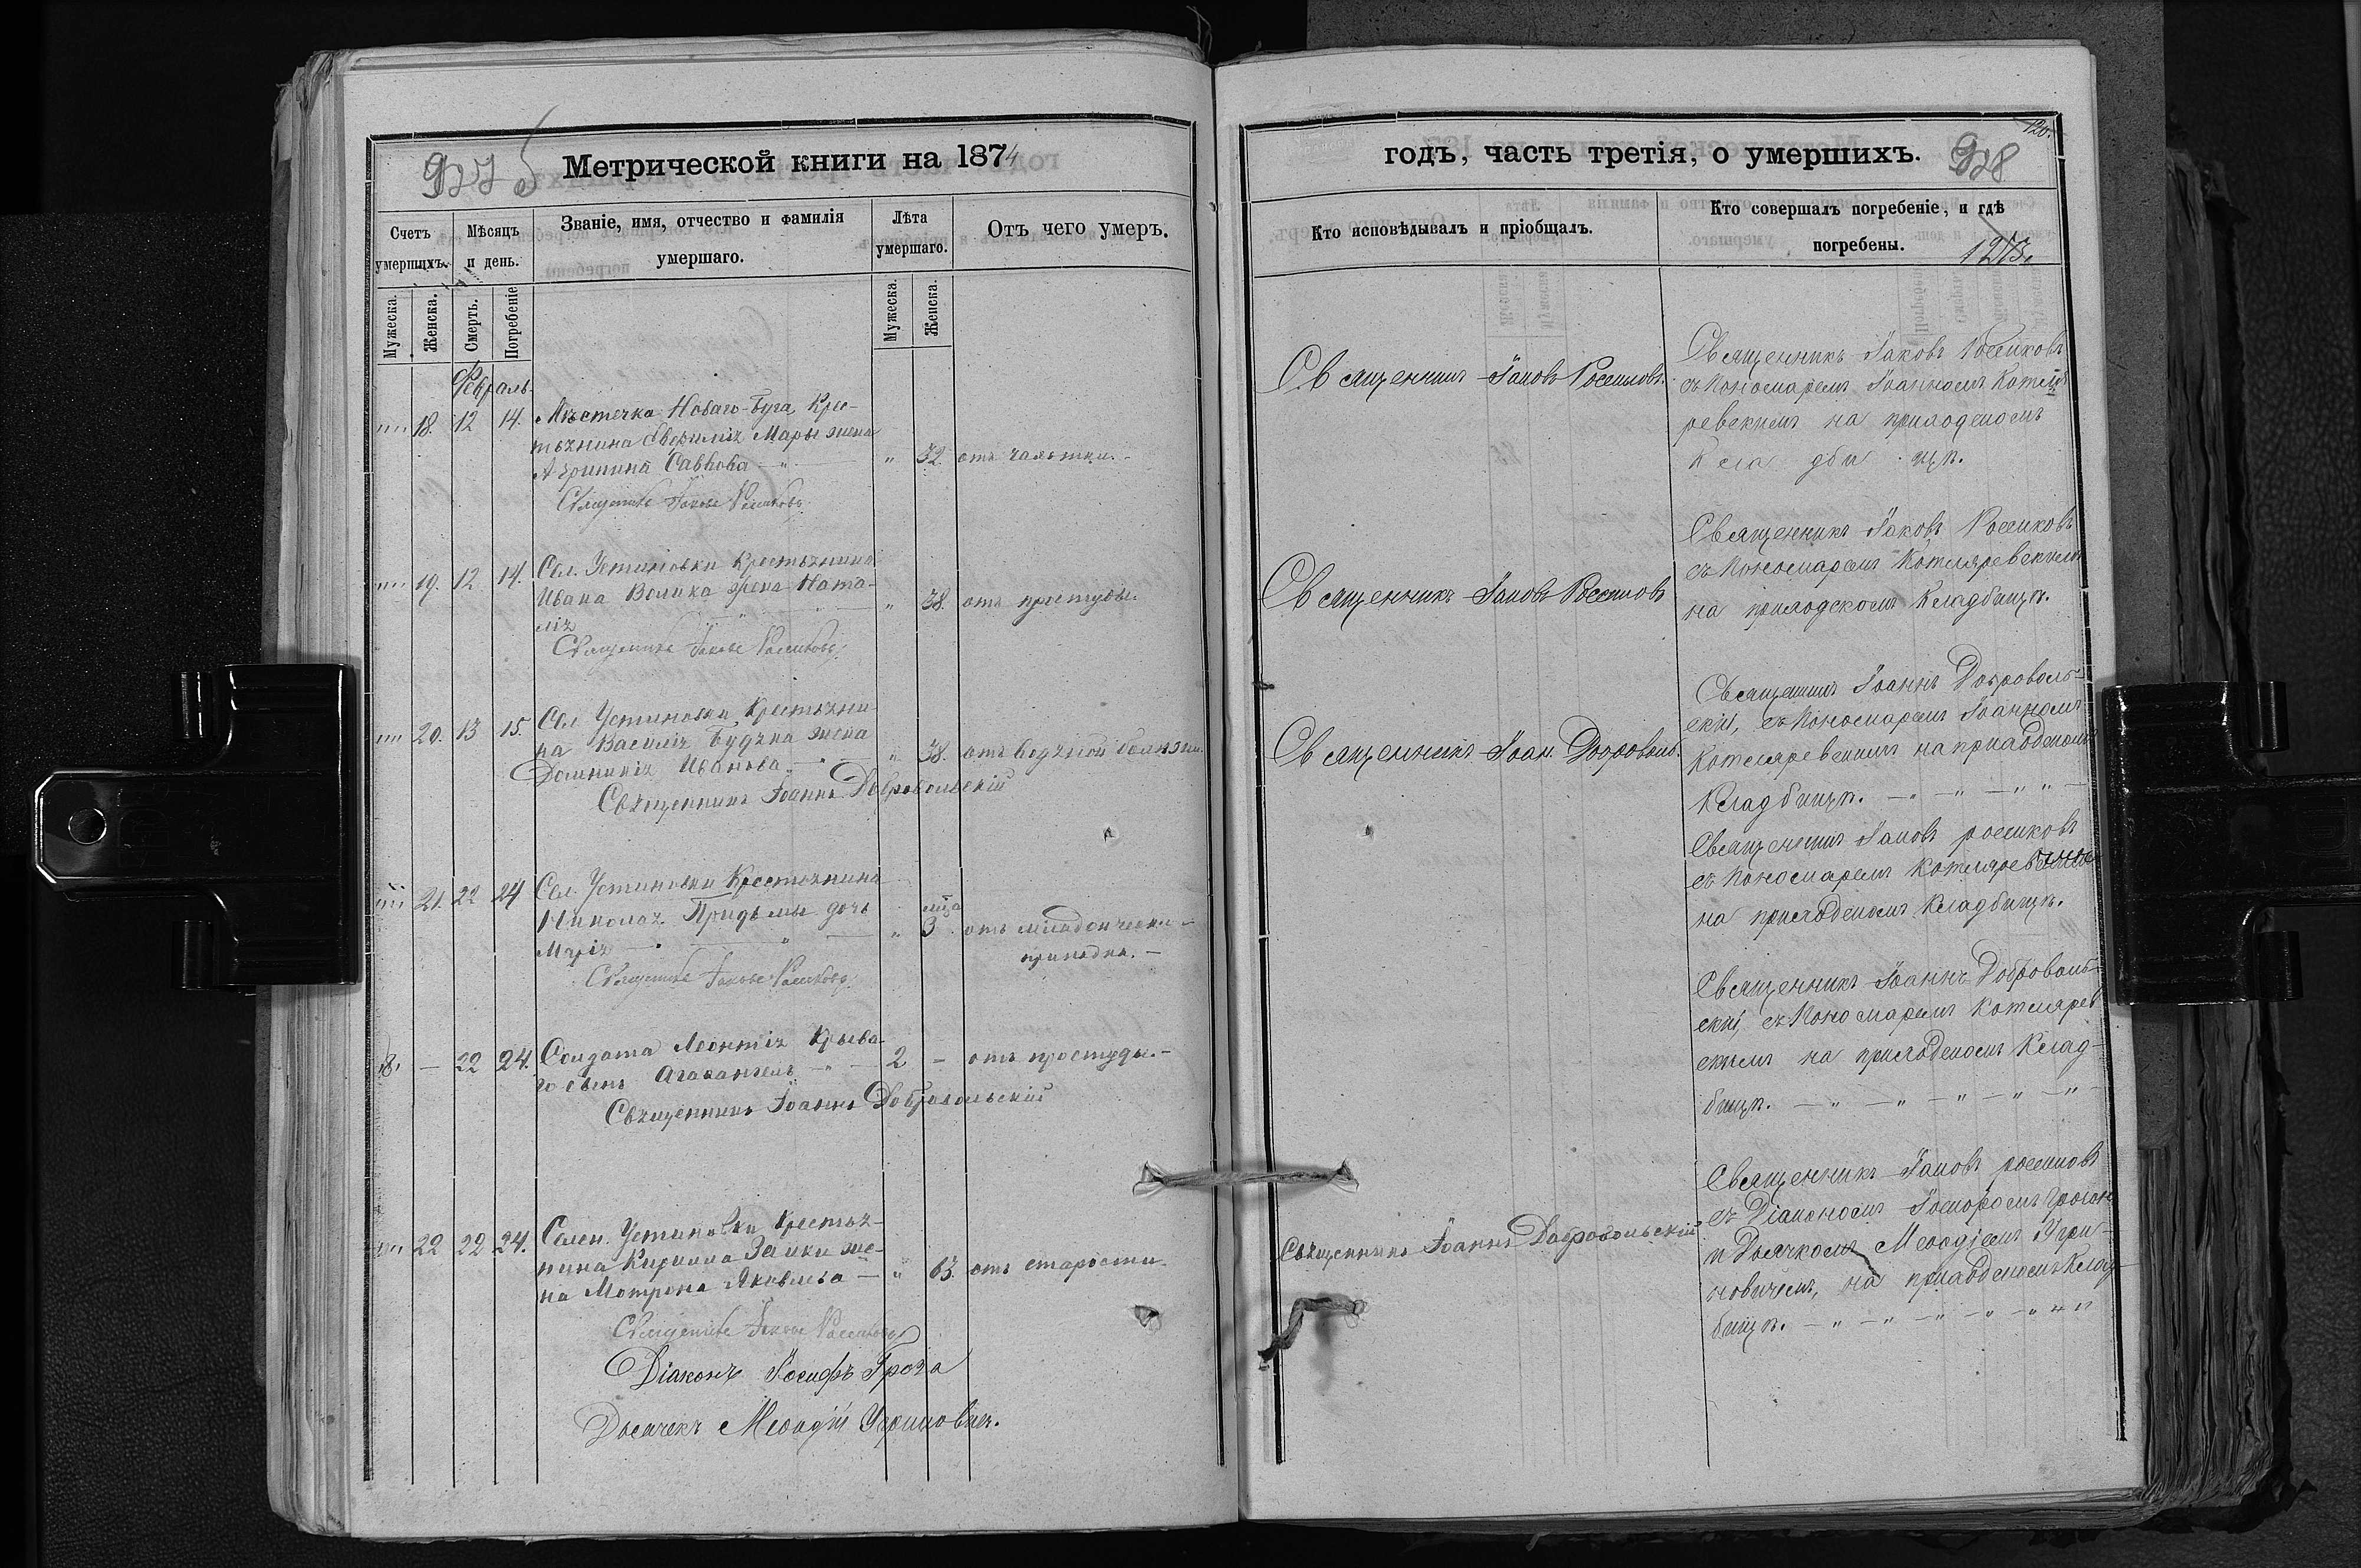 Метрической книги на 1874
Счетъ умершихъ.
Мѣсяцъ и день.
Званіе, имя, отчество и фамилія умершаго.
Лѣта умершаго.
Отъ чего умеръ.
Мужеска.
Женска.
Смерть.
Погребеніе
Мужеска.
Женска.
Февраль
18. 12 14. Мѣстечка Новаго-Буга Кре-
стьянина Евфиміи Мары жена
Агрипина Саввова " 32. отъ
Священникъ Іаковъ Россиковъ
19. 12 14. Сел. Устиновки Крестьянина
Ивана Волика жена Ната-
лія " 38. отъ простуды.
Священникъ Іаковъ Россиковъ
20. 13 15. Сел. Устиновки, Крестьяни-
на Василія жена
Домникія Иванова " 38. отъ
Священникъ Іоаннъ Добровольскій
21. 22 24 Сел. Устиновки Крестьянина
Николая Придымы дочь
Марія " мца 3 отъ младенческ.
припадка.
Священникъ Іаковъ Россиковъ
8. — 22 24. Солдата Леонтія Крыва-
го сынъ 2 — отъ простуды.
Священникъ Іоаннъ Добровольскій
22 22 24. Селен. Устиновки Крестья-
нина Кирилла Заики же-
на Матрона Яковлева — " 63. отъ старости.
Священникъ Іаковъ Россиковъ
Діаконъ Іосифъ Гроза
Дьячекъ Меѳодій Угринович.
годъ, часть третія, о умершихъ.
120.
928
Кто исповѣдывалъ и пріобщалъ.
Кто совершалъ погребеніе, и гдѣ погребены.
Священникъ Іаковъ Россиковъ.
Священникъ Іаковъ Россиковъ
съ Пономаремъ Іоанномъ Котля-
ревскимъ на приходскомъ
Кладбищѣ.
Священникъ Іаковъ Россиковъ
Священникъ Іаковъ Россиковъ
съ Пономаремъ Котляревскимъ
на приходскомъ Кладбищѣ.
Священникъ Іоан. Доброволь.
Священникъ Іоаннъ Доброволь-
скій, съ Пономаремъ Іоанномъ
Котляревскимъ на приходскомъ
Кладбищѣ.
Священникъ Іаковъ россиковъ
съ Пономаремъ Котляревскимъ
на приходскомъ Кладбищѣ.
Священникъ Іоаннъ Доброволь-
скій, съ Пономаремъ Котлярев
скимъ на приходскомъ Клад-
бищѣ.
Священникъ Іоаннъ Добровольскій
Священникъ Іаковъ россиковъ
съ Діакономъ Іосифомъ Грозою
и Дьячкомъ Меѳодіемъ Угри-
новичемъ, на приходскомъ Клад-
бищѣ.